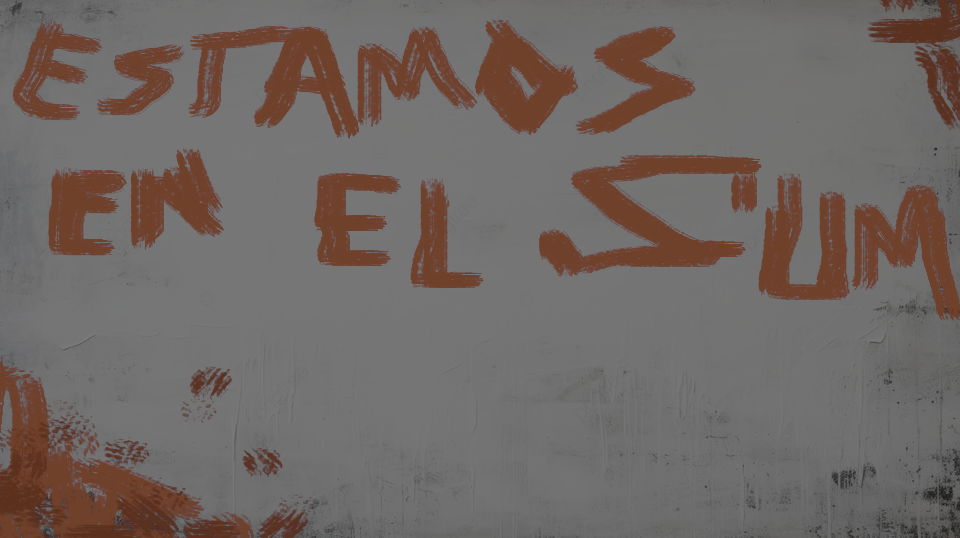 ESTAMOS
EN EL SUM